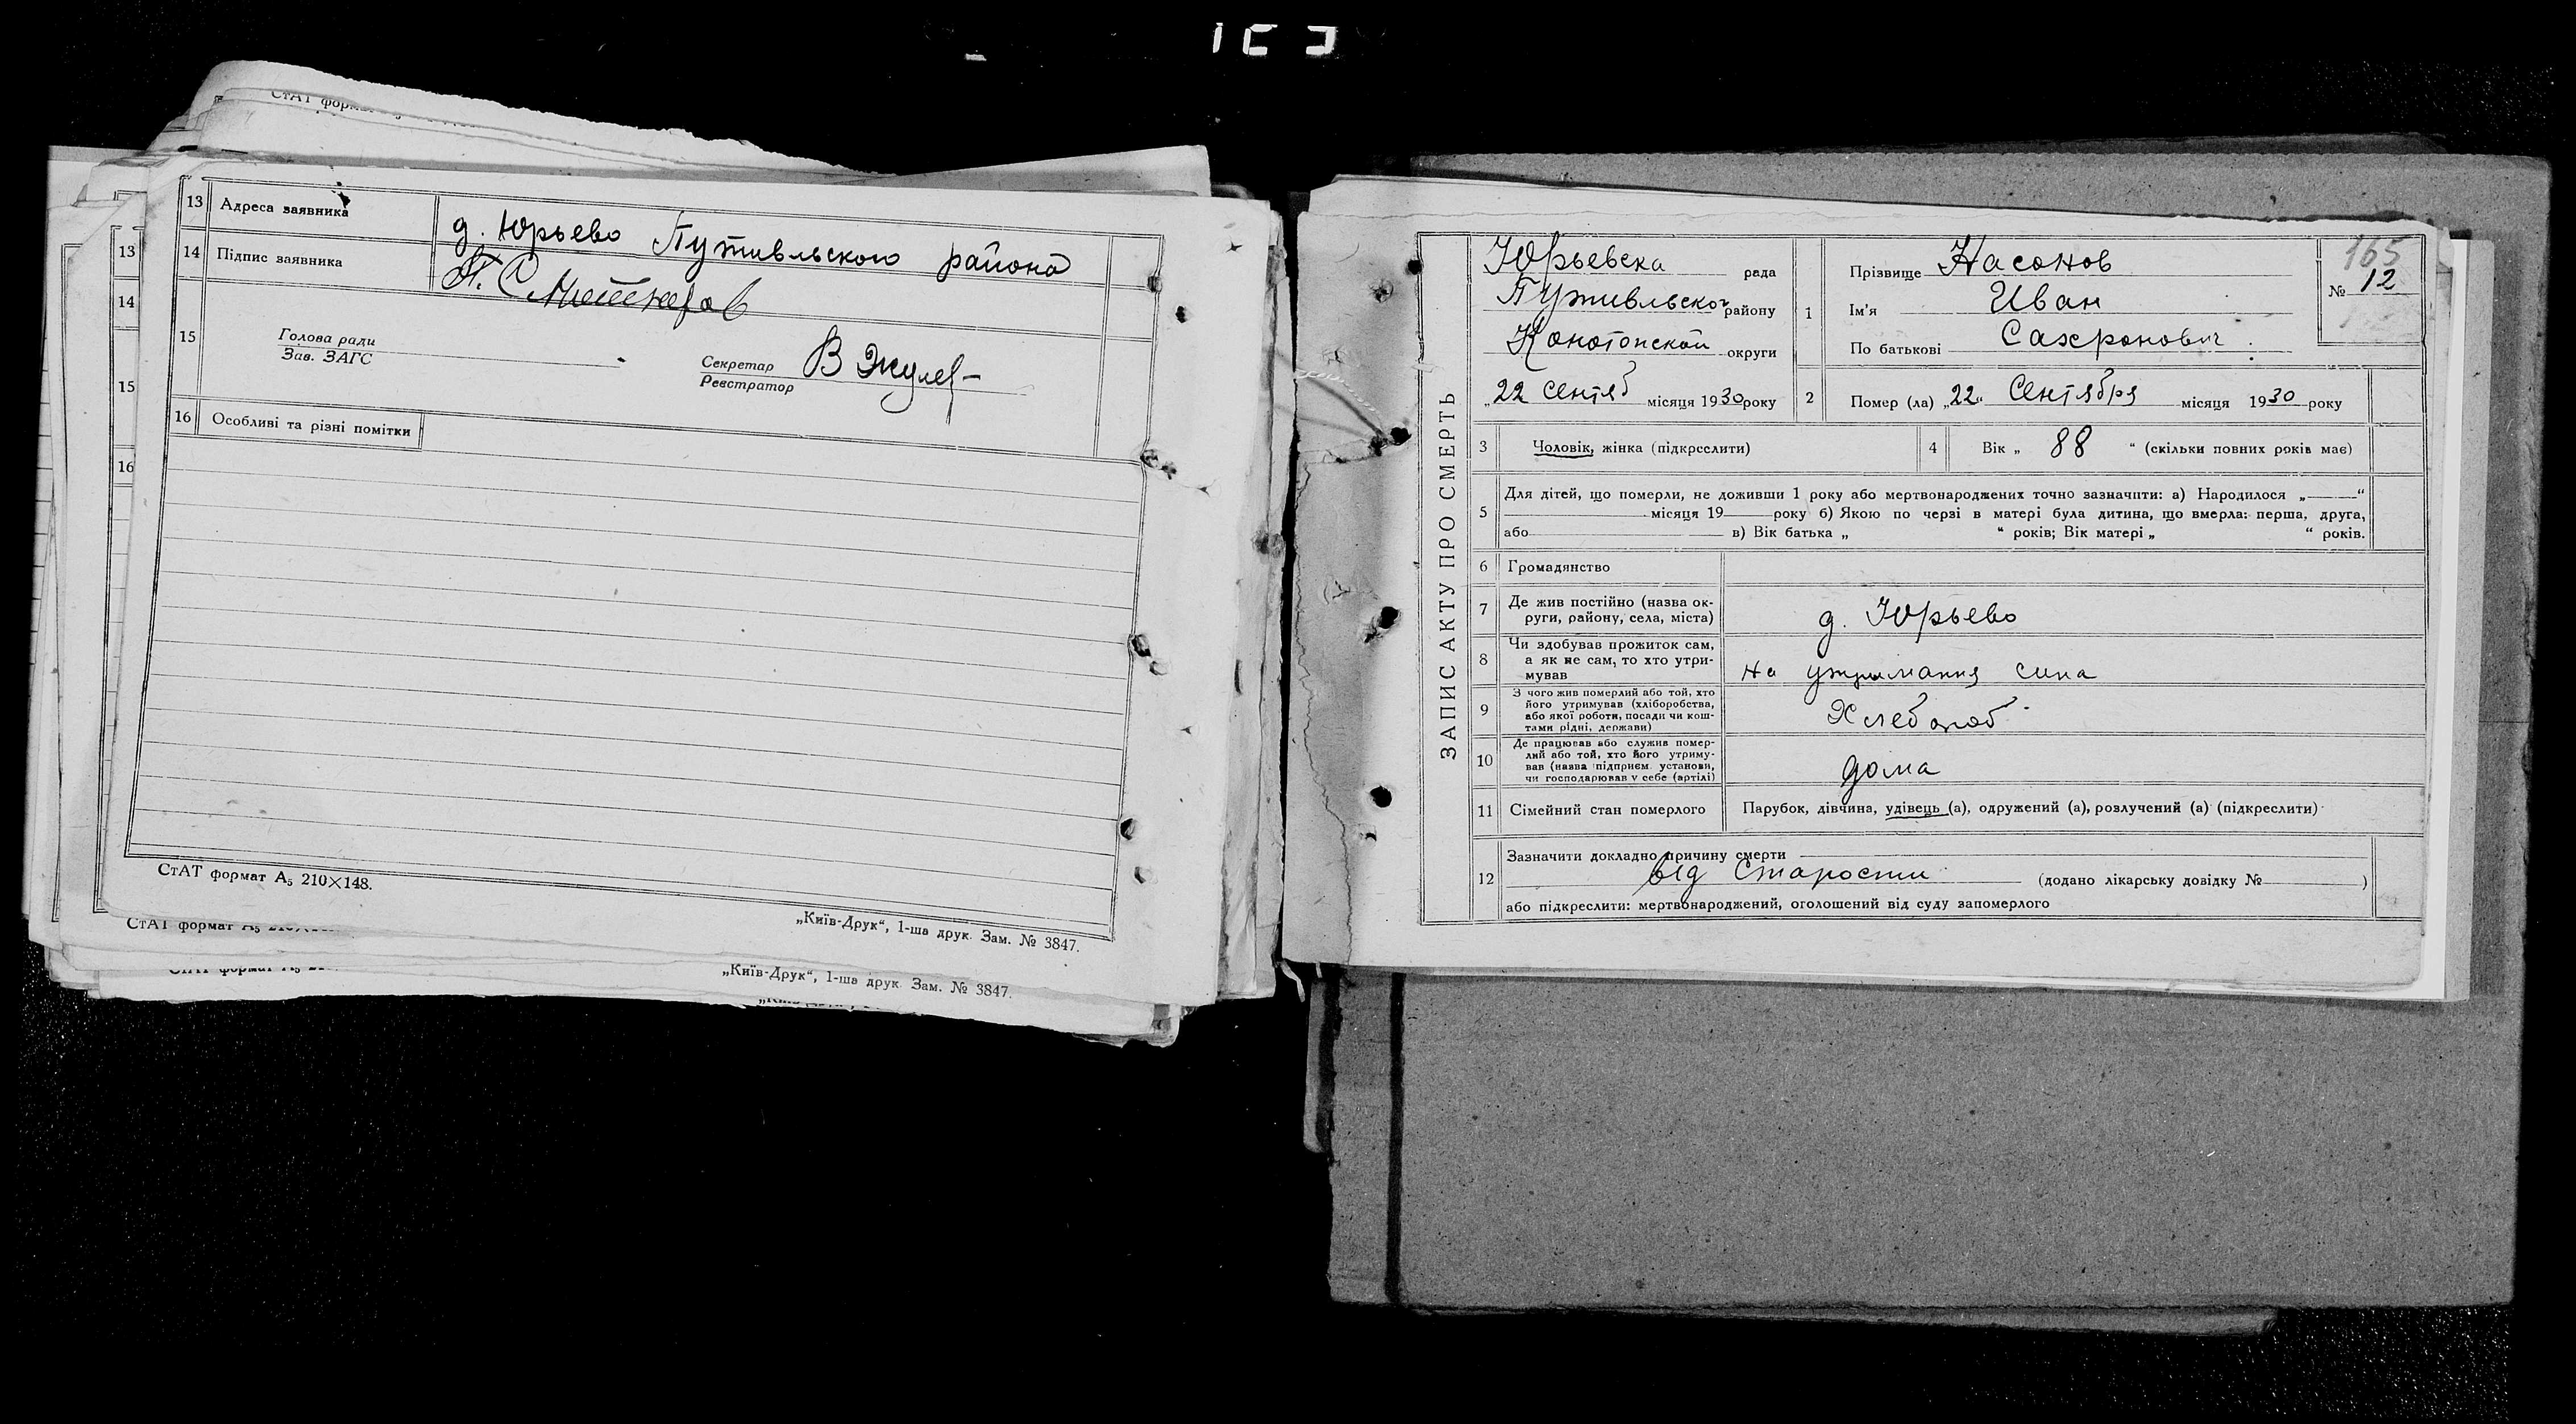 СтАТ
13 Адреса заявника д. Юрьево Путивльского района
14 Підпис заявника П. С
15 Голова ради
Зав. ЗАГС
Секретар
Реєстратор
В
16 Особливі та різні помітки
СтАТ формат А5 210×148.
„Київ-Друк“, 1-ша друк. Зам. № 3847.
13
14
15
16
СтАТ формат А5
„Київ-Друк“, 1-ша друк. Зам. № 3847.
ЗАПИС АКТУ ПРО СМЕРТЬ
Юрьевска рада
Путивльског району
Конотопской округи
„22 Сентяб місяця 1930 року
165
№ 12
1 Прізвище Насонов
Ім'я Иван
По батькові Сахронович
2 Помер (ла) „22“ Сентября місяця 1930 року
3 Чоловік, жінка (підкреслити)
4 Вік „ 88 “ (скільки повних років має)
5 Для дітей, що померли, не доживши 1 року або мертвонароджених точно зазначити: а) Народилося „ “
місяця 19 року б) Якою по черзі в матері була дитина, що вмерла: перша, друга,
або в) Вік батька „ “ років; Вік матері „ “ років.
6 Громадянство
7 Де жив постійно (назва ок-
руги, району, села, міста)
д. Юрьево
8 Чи здобував прожиток сам,
а як не сам, то хто утри-
мував
на утримания сина
9 З чого жив померлий або той, хто
його утримував (хліборобства,
або якої роботи, посади чи кош-
тами рідні, держави)
Хлебороб
10 Де працював або служив помер-
лий або той, хто його утриму-
вав (назва підприєм. установи,
чи господарював у себе (артілі)
дома
11 Сімейний стан померлого Парубок, дівчина, удівець (а), одружений (а), розлучений (а) (підкреслити)
12 Зазначити докладно причину смерти
від Старости (додано лікарську довідку № )
або підкреслити: мертвонароджений, оголошений від суду запомерлого